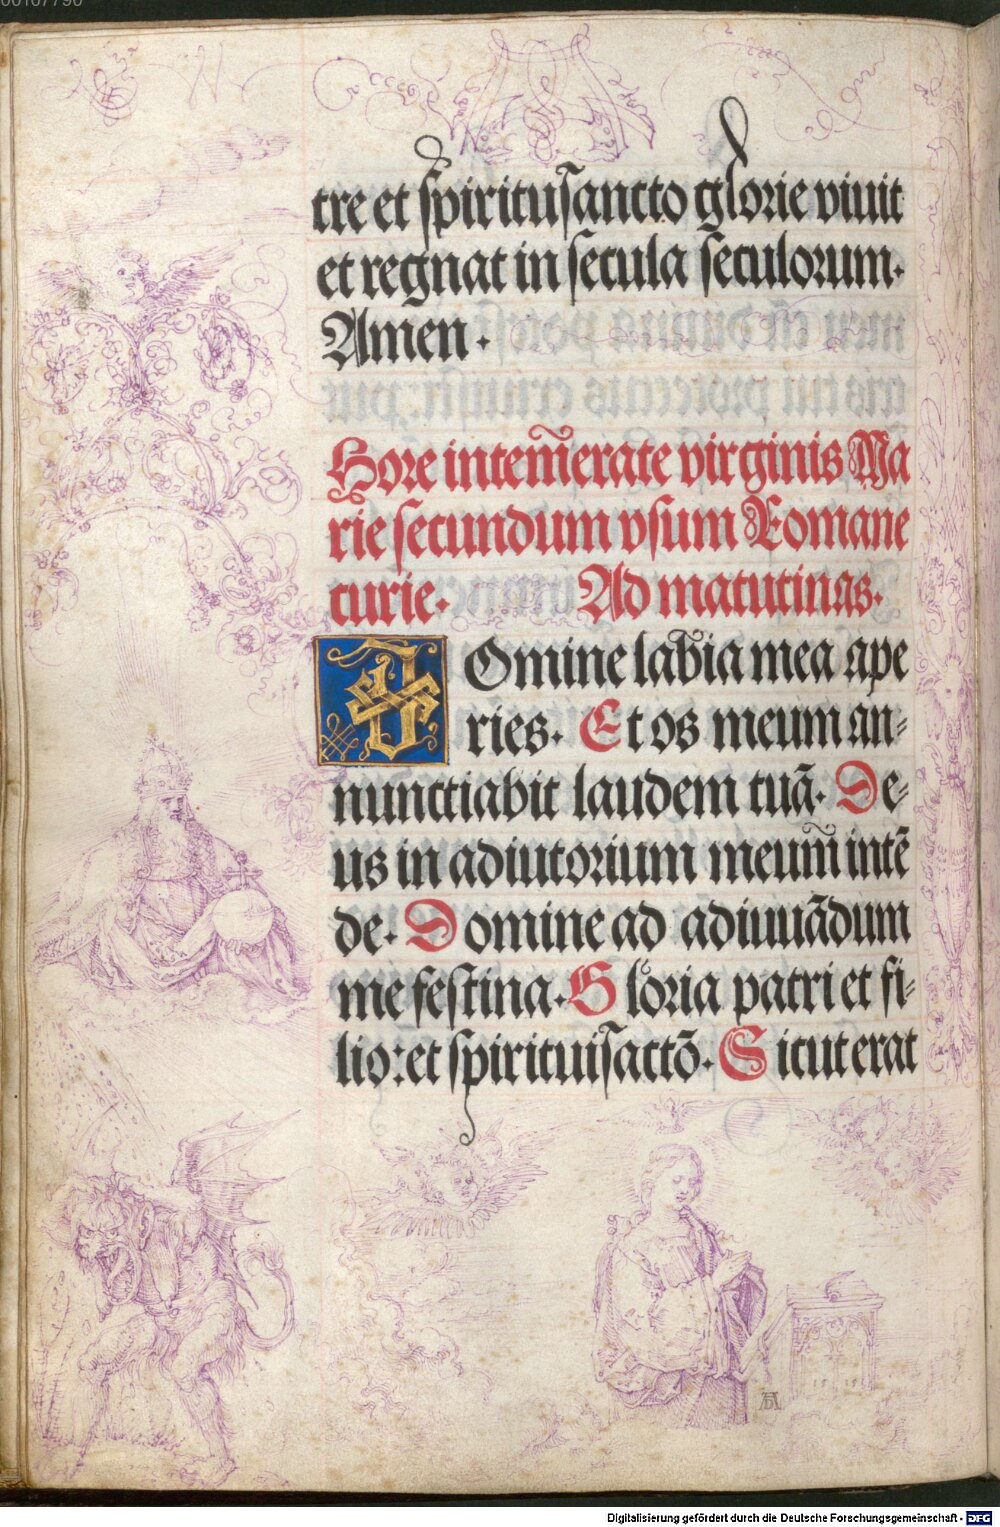 00107790
tre et spiritusancto glorie viuit
et regnat in secula seculorum.
Amen.
Hore intem̄erate virginis Ma
rie secundum vsum Romane
curie. Ad matutinas.
DOmine labia mea ape
ries. Et os meum an-
nunctiabit laudem tuā. De-
us in adiutorium meum̄ intē
de. Domine ad adiuuādum
me festina. Gloria patri et fi-
lio: et spirituisāctō. Sicut erat
1515
AD
Digitalisierung gefördert durch die Deutsche Forschungsgemeinschaft - DFG